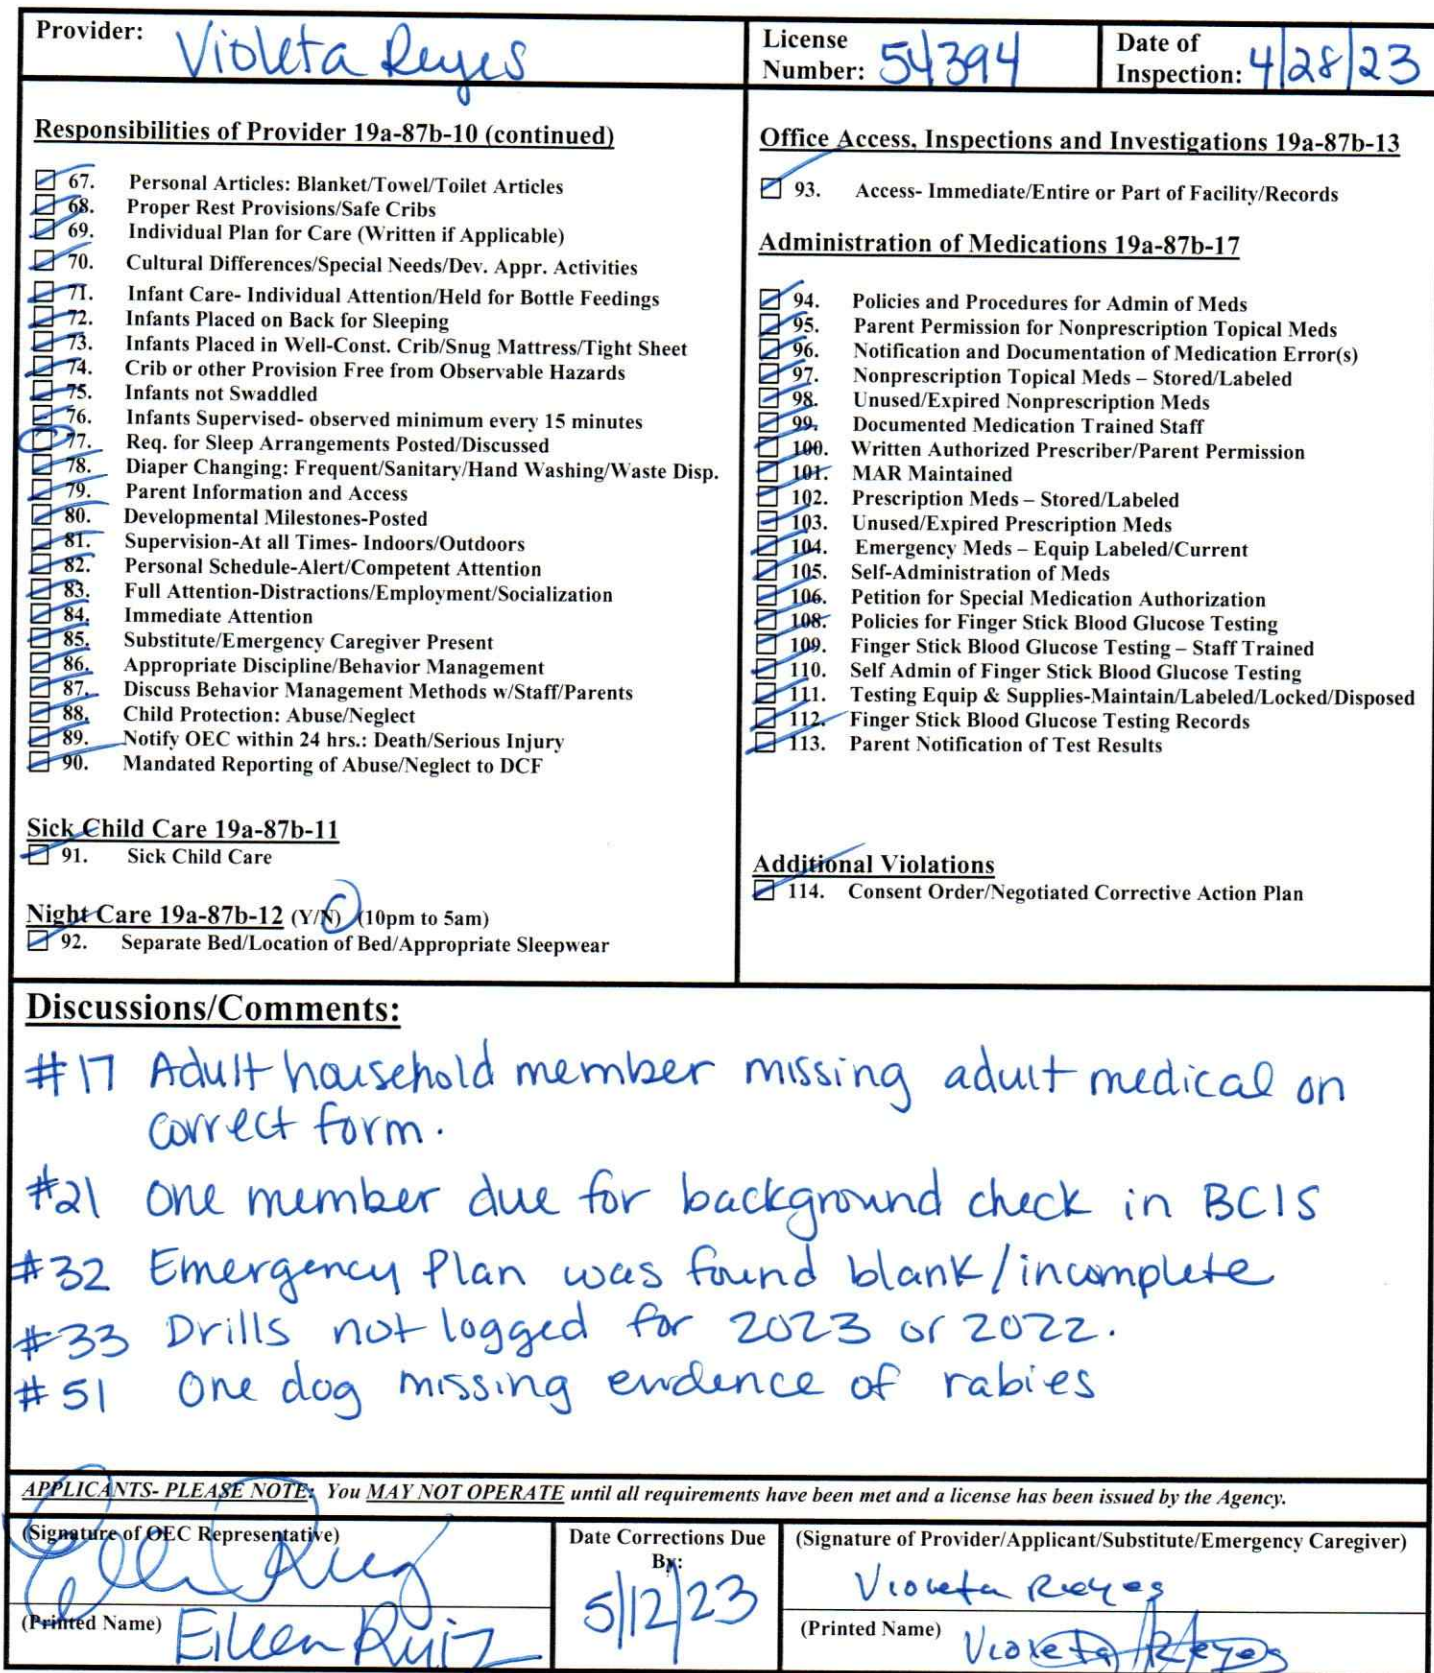 Provider: Violeta Reyes
License Number: 54394
Date of Inspection: 4/28/23
Responsibilities of Provider 19a-87b-10 (continued)
67. Personal Articles: Blanket/Towel/Toilet Articles
68. Proper Rest Provisions/Safe Cribs
69. Individual Plan for Care (Written if Applicable)
70. Cultural Differences/Special Needs/Dev. Appr. Activities
71. Infant Care- Individual Attention/Held for Bottle Feedings
72. Infants Placed on Back for Sleeping
73. Infants Placed in Well-Const. Crib/Snug Mattress/Tight Sheet
74. Crib or other Provision Free from Observable Hazards
75. Infants not Swaddled
76. Infants Supervised- observed minimum every 15 minutes
77. Req. for Sleep Arrangements Posted/Discussed
78. Diaper Changing: Frequent/Sanitary/Hand Washing/Waste Disp.
79. Parent Information and Access
80. Developmental Milestones-Posted
81. Supervision-At all Times- Indoors/Outdoors
82. Personal Schedule-Alert/Competent Attention
83. Full Attention-Distractions/Employment/Socialization
84. Immediate Attention
85. Substitute/Emergency Caregiver Present
86. Appropriate Discipline/Behavior Management
87. Discuss Behavior Management Methods w/Staff/Parents
88. Child Protection: Abuse/Neglect
89. Notify OEC within 24 hrs.: Death/Serious Injury
90. Mandated Reporting of Abuse/Neglect to DCF
Sick Child Care 19a-87b-11
91. Sick Child Care
Night Care 19a-87b-12 (Y/N) (10pm to 5am)
92. Separate Bed/Location of Bed/Appropriate Sleepwear
Office Access, Inspections and Investigations 19a-87b-13
93. Access- Immediate/Entire or Part of Facility/Records
Administration of Medications 19a-87b-17
94. Policies and Procedures for Admin of Meds
95. Parent Permission for Nonprescription Topical Meds
96. Notification and Documentation of Medication Error(s)
97. Nonprescription Topical Meds – Stored/Labeled
98. Unused/Expired Nonprescription Meds
99. Documented Medication Trained Staff
100. Written Authorized Prescriber/Parent Permission
101. MAR Maintained
102. Prescription Meds – Stored/Labeled
103. Unused/Expired Prescription Meds
104. Emergency Meds – Equip Labeled/Current
105. Self-Administration of Meds
106. Petition for Special Medication Authorization
108. Policies for Finger Stick Blood Glucose Testing
109. Finger Stick Blood Glucose Testing – Staff Trained
110. Self Admin of Finger Stick Blood Glucose Testing
111. Testing Equip & Supplies-Maintain/Labeled/Locked/Disposed
112. Finger Stick Blood Glucose Testing Records
113. Parent Notification of Test Results
Additional Violations
114. Consent Order/Negotiated Corrective Action Plan
Discussions/Comments:
#17 Adult household member missing adult medical on
correct form.
#21 One member due for background check in BCIS
#32 Emergency Plan was found blank/incomplete
#33 Drills not logged for 2023 or 2022.
#51 One dog missing evidence of rabies
APPLICANTS- PLEASE NOTE: You MAY NOT OPERATE until all requirements have been met and a license has been issued by the Agency.
(Signature of OEC Representative)
(Printed Name) Eileen Ruiz
Date Corrections Due
By:
5/12/23
(Signature of Provider/Applicant/Substitute/Emergency Caregiver)
Violeta Reyes
(Printed Name) Violeta Reyes